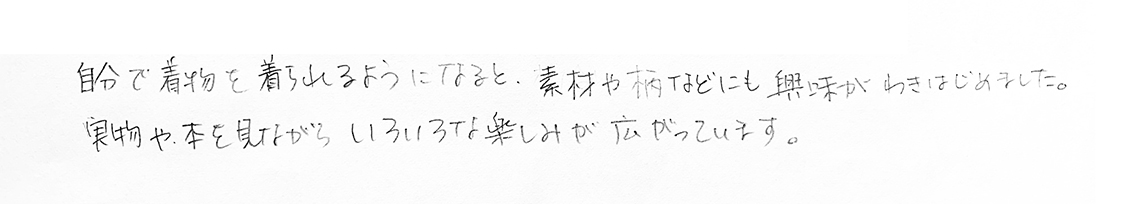 自分で着物を着られるようになると、素材や柄などにも興味がわきはじめました。
実物や、本を見ながらいろいろな楽しみが広がっています。